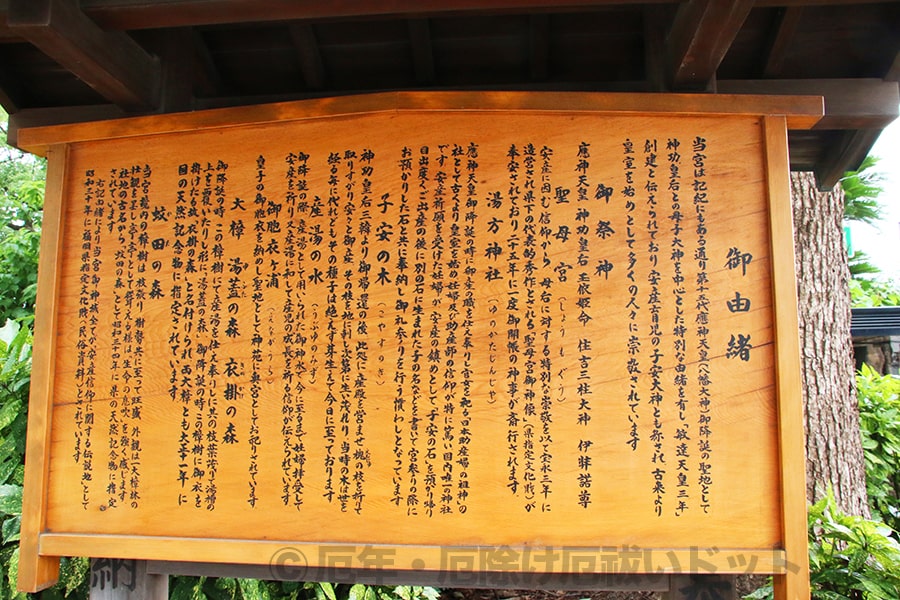 御由緒
当宮は記紀にもある通り第十五代應神天皇（八幡大神）御降誕の聖地として
神功皇后との母子大神を中心とした特別な由緒を有し、敏達天皇三年
創建と伝えられており安産育児の子安大神とも称され古来より
皇室を始めとして多くの人々に崇敬されています
御祭神
應神天皇 神功皇后 玉依姫命 住吉三柱大神 伊弉諾尊
聖母宮（しょうもぐう）
安産に因む信仰から、母后に対する特別な崇敬を以て宝永三年に
造営され県下の代表的秀作とされる聖母宮御神像（県指定文化財）が
奉安されており二十五年に一度御開帳の神事が斎行されます
湯方神社（ゆのかたじんじゃ）
應神天皇御降誕の時に御産婆の職を仕え奉りし官女を祀る日本助産婦の祖神の
社として古くより皇室を始め妊婦及び助産師の信仰が特に篤い国内唯一の神社
です。安産祈願を受けた妊婦が安産の鎮めとして子安の石を預かり帰り
目出度くご出産の後に別の石に生まれた子の名などを書いて宮参りの際に
お預かりした石と共に奉納し御礼参りを行う慣わしとなっています
子安の木（こやすのき）
神功皇后三韓より御帰還の後此処に産殿を営ませ槐の枝を折りて
取りすがり安らかに御産その枝を地に刺し次第に生い茂れり当時の木は世を
経る毎に代れどもその種子は絶えず芽生えて今日に至っております
産湯の水（うぶゆのみず）
御降誕の際産湯として用いられた御神水で今に至るまで妊婦拝受して
安産を祈り又産湯に和して産児の成長を祈る信仰が伝えられています
御胞衣ヶ浦（えながうら）
皇子の御胞衣を納めし聖地として神苑に奥宮としてお祀りされています
大樟 湯蓋の森 衣掛の森
御降誕の時、この樟樹の下にて産湯を仕え奉りしに其の枝葉茂りて湯槽の
上をさえ覆いたりし形に「湯蓋の森」御降誕の時この樟樹に御衣を
掛けたる故「衣掛の森」と名付けられ両大樟とも大正十一年に
国の天然記念物に指定されています
蚊田の森
当宮境内の樟樹は枝張り樹勢共に至って旺盛外観は「大樟林の
壮観を呈し亭々として聳ゆる様は生命の息吹」を強く感じます
社地の古名から「蚊田の森」として昭和三十四年に県の天然記念物に指定
されています
右記由緒により当宮御神域全てが「安産信仰に関する伝説地」として
昭和三十年に福岡県指定文化財（民俗資料）とされています
納
© 厄年・厄除け厄祓いドットコム